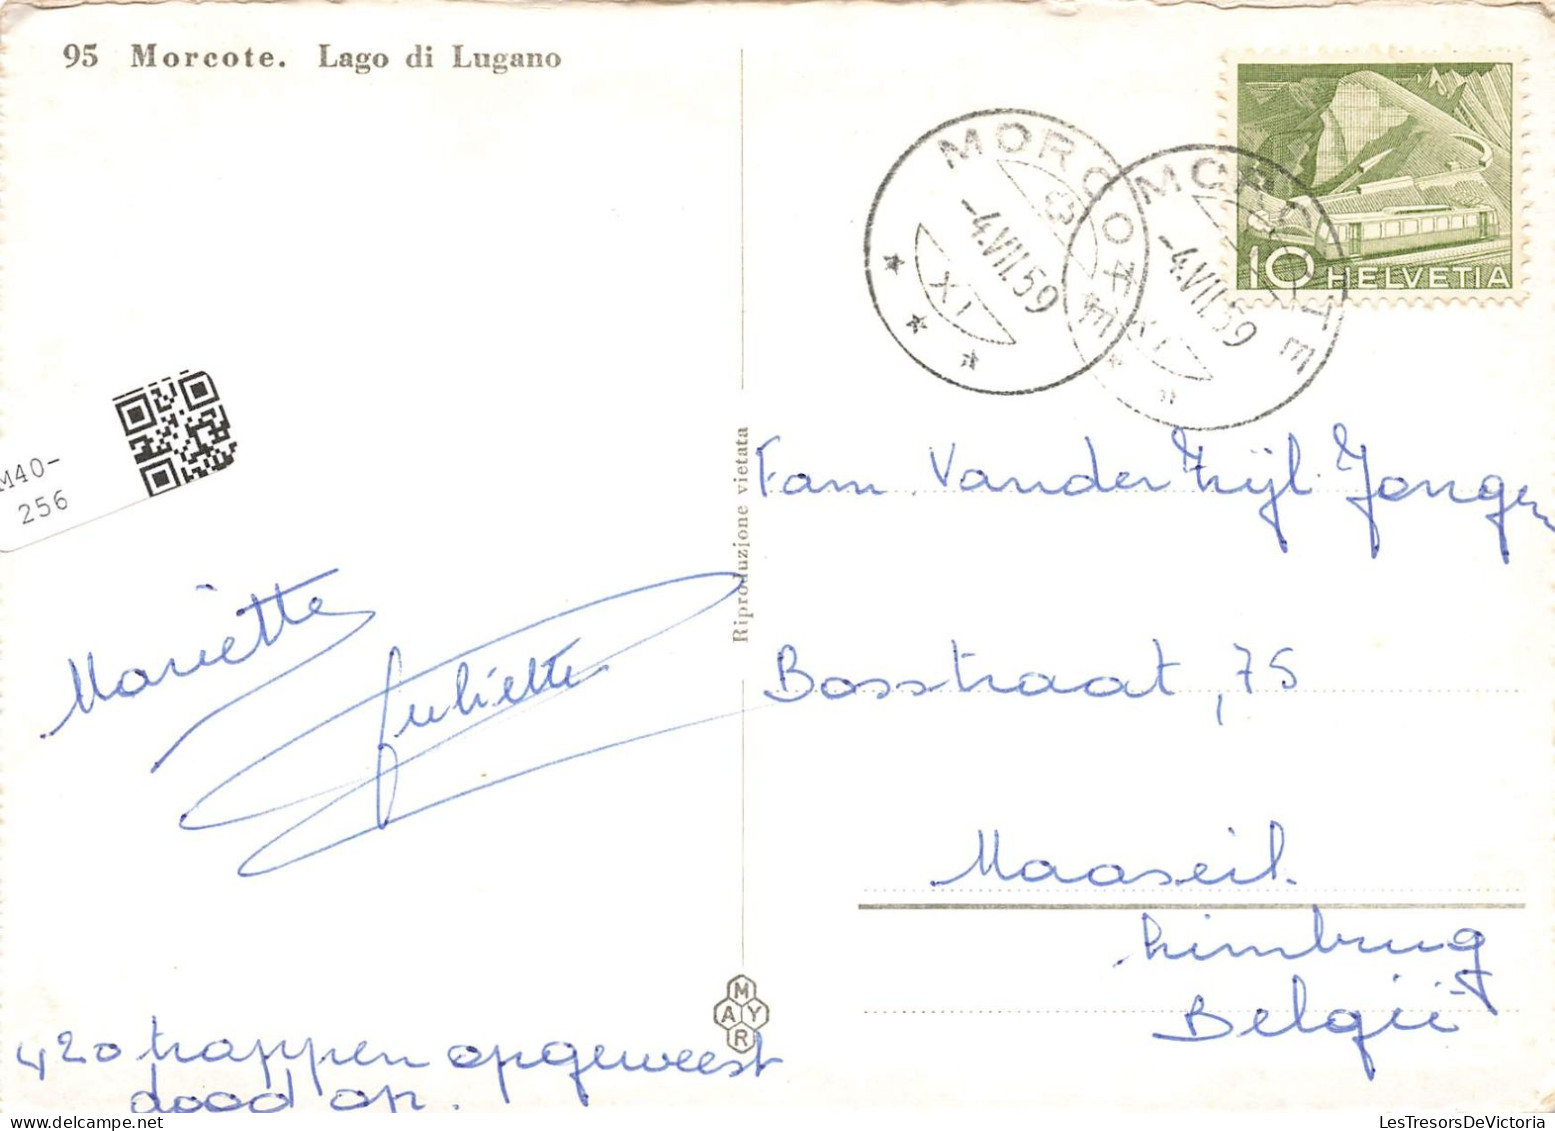 95 Morcote. Lago di Lugano
MORCOTE
-4.VII.59
XI
MORCOTE
-4.VII.59
XI
10 HELVETIA
M40-
256
Riproduzione vietata
Fam. Vander Zijl. Jongen
Bosstraat, 75
Maaseik
Limburg
België
Mariette
Juliette
MAYR
420 trappen opgeweest
dood op.
LesTresorsDeVictoria